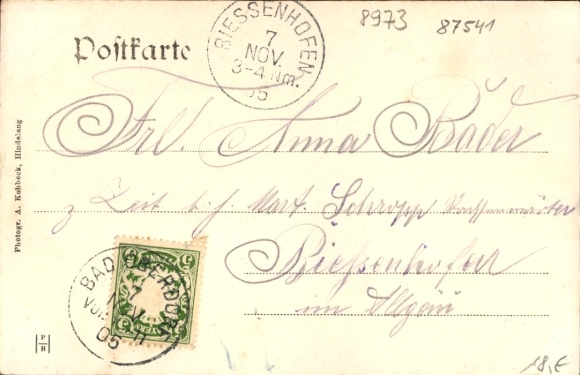 8973
87541
Postkarte
BIESSENHOFEN
7
NOV.
3-4 Nm.
05
Frl. Anna Bader
z Zeit b. H. Mart. Schropp
Biessenhofen
im Allgäu
BAD OBERDORF
7
NOV
05
5
Photogr. A. Kohbeck, Hindelang
P/B
18,€